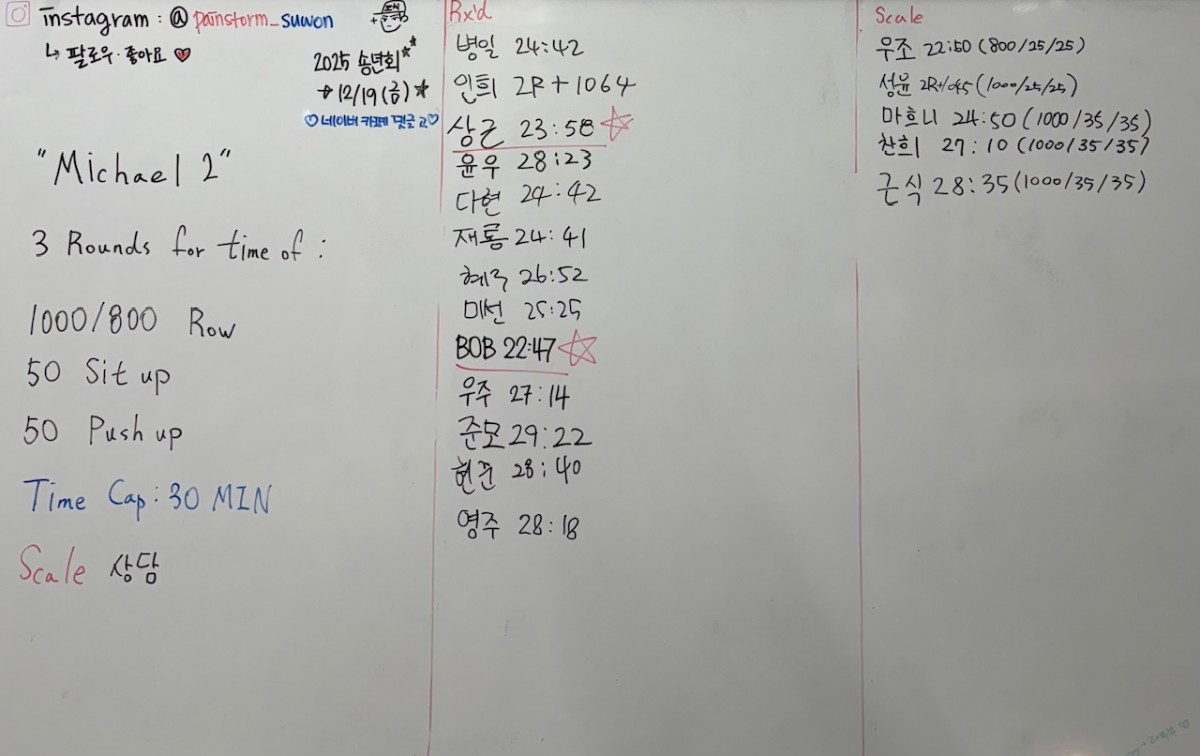 instagram : @ painstorm_suwon
↳ 팔로우·좋아요 ♥
2025 송년회
12/19 (금)
♡네이버 카페 댓글 고♡
"Michael 2"
3 Rounds for time of :
1000/800 Row
50 Sit up
50 Push up
Time Cap : 30 MIN
Scale 상담
Rx'd
병일 24:42
인희 2R + 1064
상근 23:58 ☆
윤우 28:23
다현 24:42
재룡 24:41
26:52
미선 25:25
BOB 22:47 ☆
우주 27:14
준모 29:22
현준 28:40
영주 28:18
Scale
우조 22:50 (800/25/25)
성윤 (1000/25/25)
마흐니 24:50 (1000/35/35)
찬희 27:10 (1000/35/35)
근식 28:35 (1000/35/35)